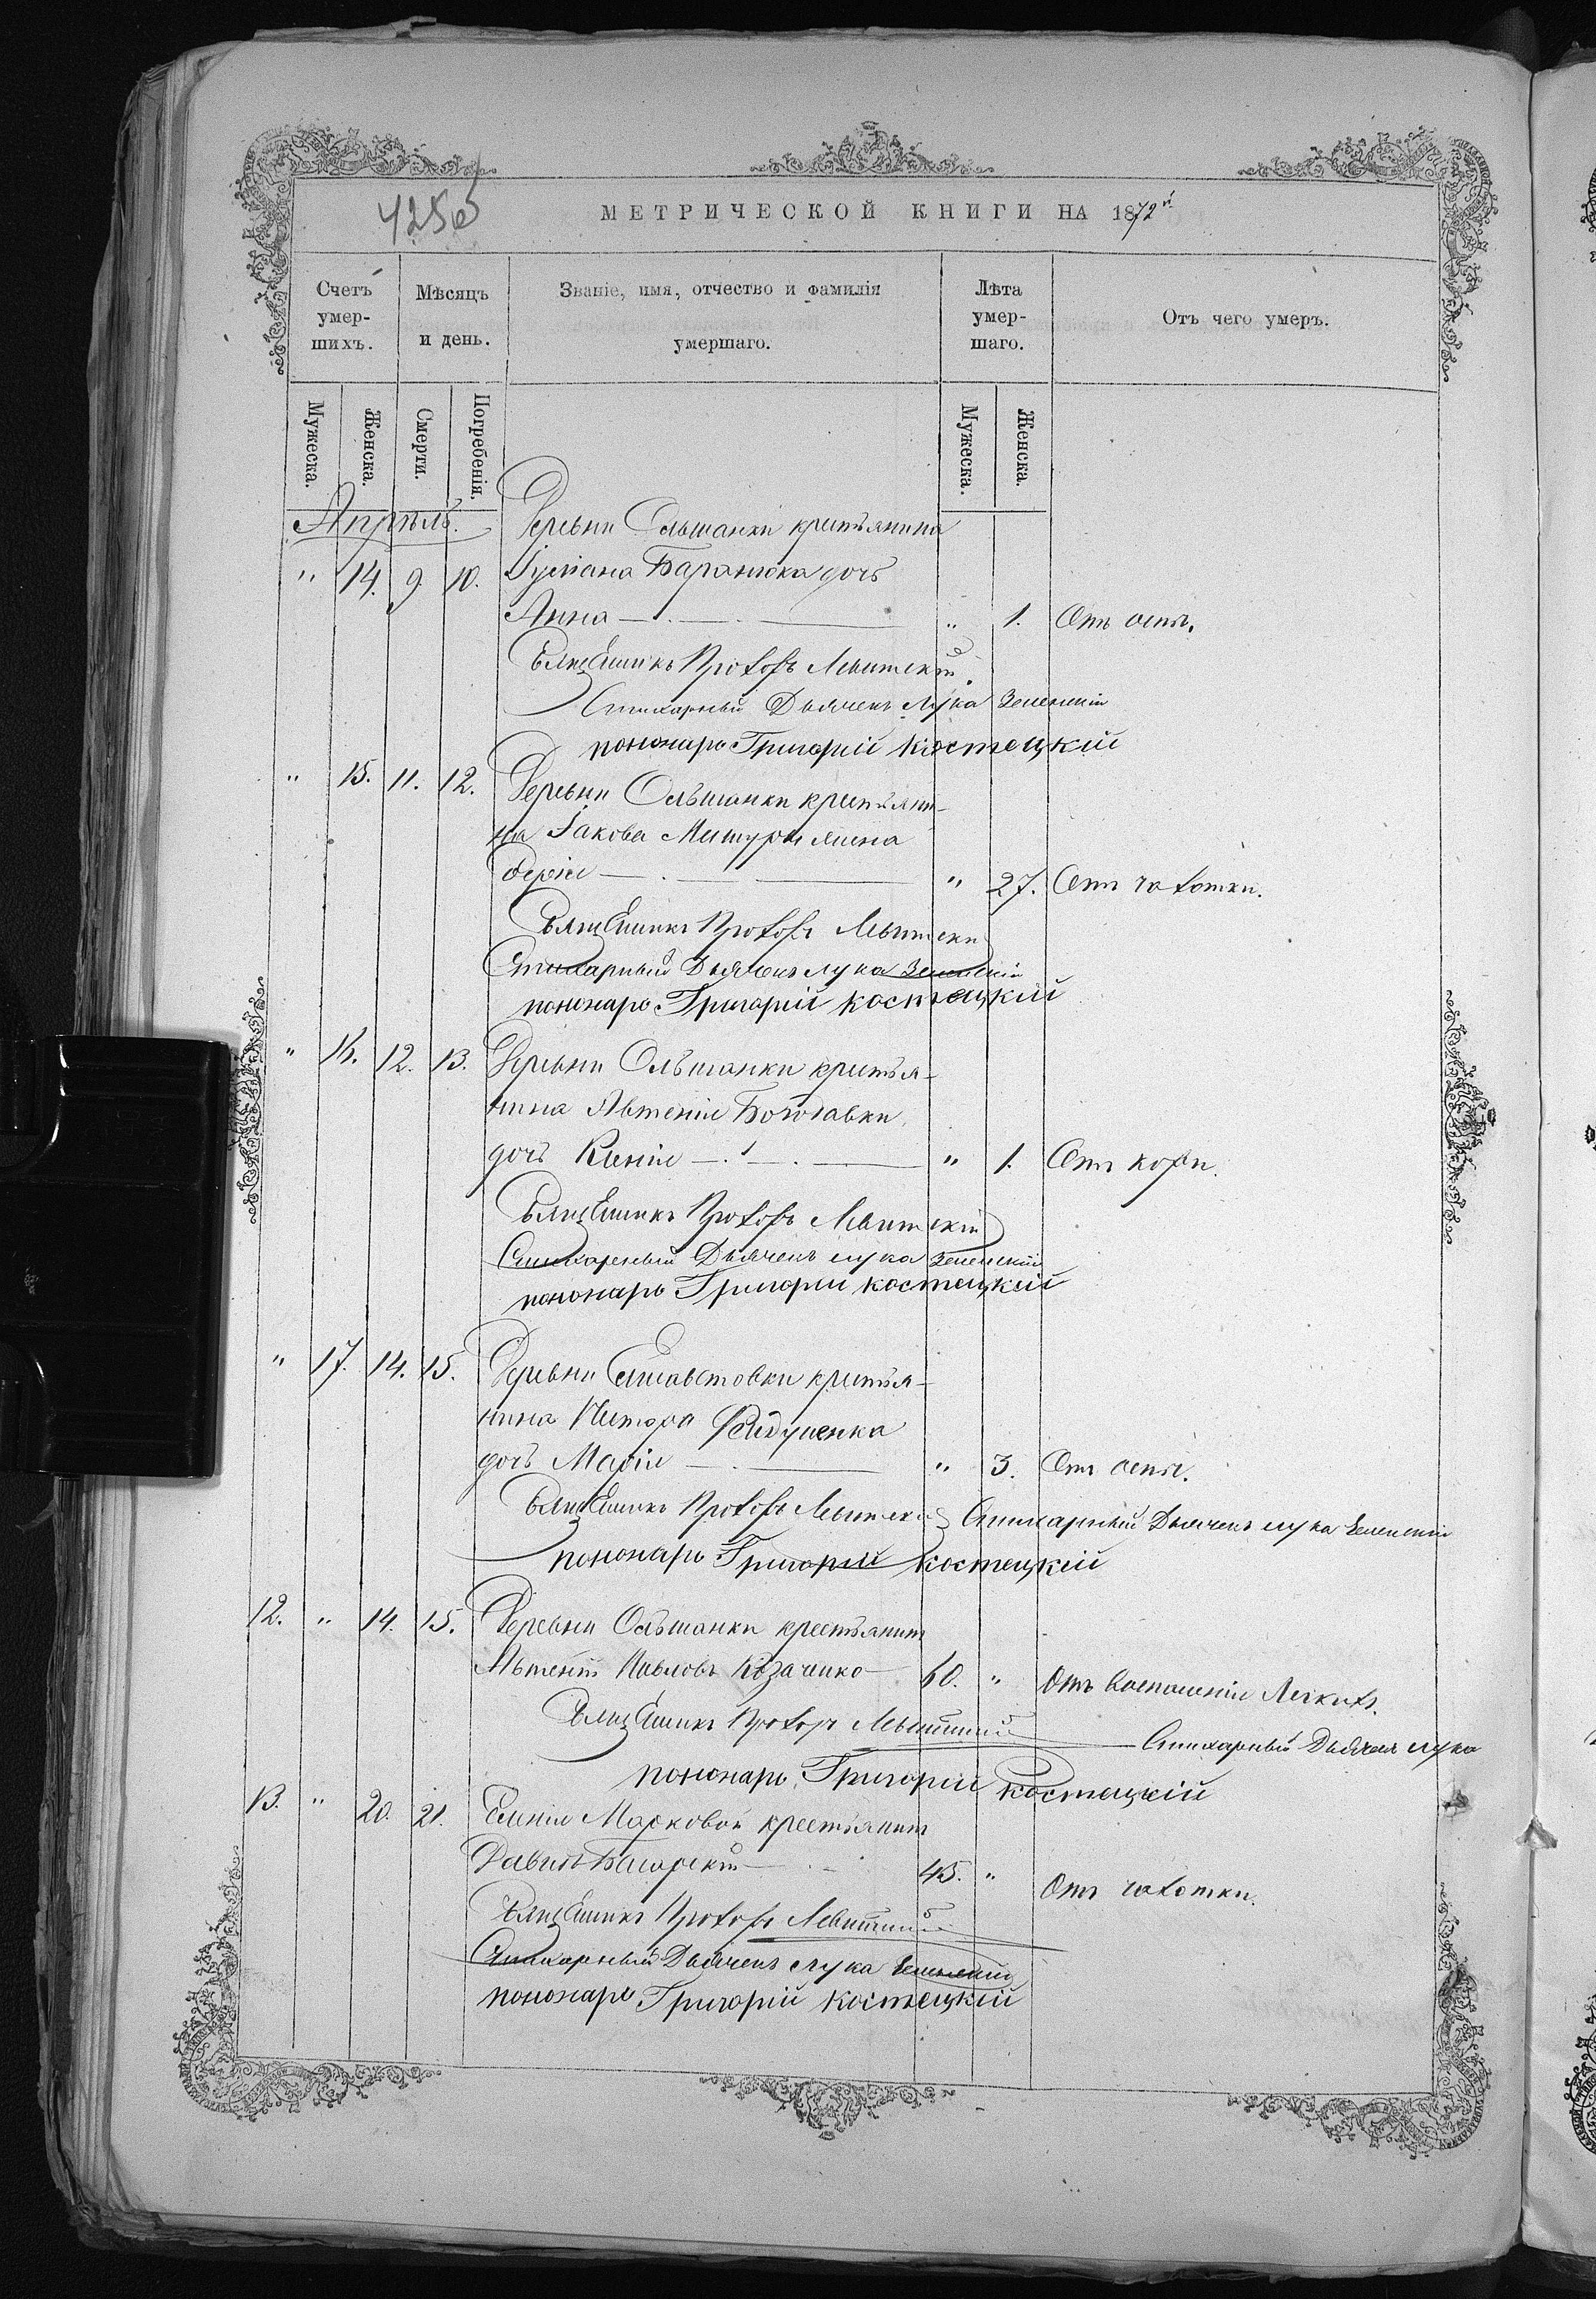 425об
МЕТРИЧЕСКОЙ КНИГИ НА 1872й
Счетъ умер-шихъ.
Мѣсяцъ и день.
Званіе, имя, отчество и фамилія умершаго.
Лѣта умер-шаго.
Отъ чего умеръ.
Мужеска. Женска. Смерти. Погребенія. Мужеска. Женска.
Апрѣль. Деревни Ольшанки крестьянина
" 14. 9. 10. Баранюка дочь
Анна " 1. Отъ оспы.
Священникъ Прохоръ Левитскій.
Стихарный Дьячекъ Лука Зеленскій
пономарь Григорій Костецкій
" 15. 11. 12. Деревни Ольшанки крестьяни-
на Іакова жена
" 27. Отъ чахотки.
Священникъ Прохоръ Левитскій
Стихарный Дьячекъ Лука Зеленскій
пономарь Григорій Костецкій
" 16. 12. 13. Деревни Ольшанки крестья-
нина Автенія
дочь Ксенія " 1. Отъ кори.
Священникъ Прохоръ Левитскій
Стихарный Дьячекъ Лука Зеленскій
пономарь Григорій Костецкій
" 17. 14. 15. Деревни Елисаветовки крестья-
нина Петра
дочь Марія " 3. Отъ оспы.
Священникъ Прохоръ Левитскій Стихарный Дьячекъ Лука Зеленскій
пономарь Григорій Костецкій
12. " 14. 15. Деревни Ольшанки крестьянинъ
Автеній Павловъ Козаченко 60. " Отъ воспаленія Легкихъ.
Священникъ Прохоръ Левитскій Стихарный Дьячекъ Лука
пономарь Григорій Костецкій
13. " 20. 21. Марковой крестьянинъ
Давидъ 45. " Отъ чахотки.
Священникъ Прохоръ Левитскій
Стихарный Дьячекъ Лука Зеленскій
пономарь Григорій Костецкій